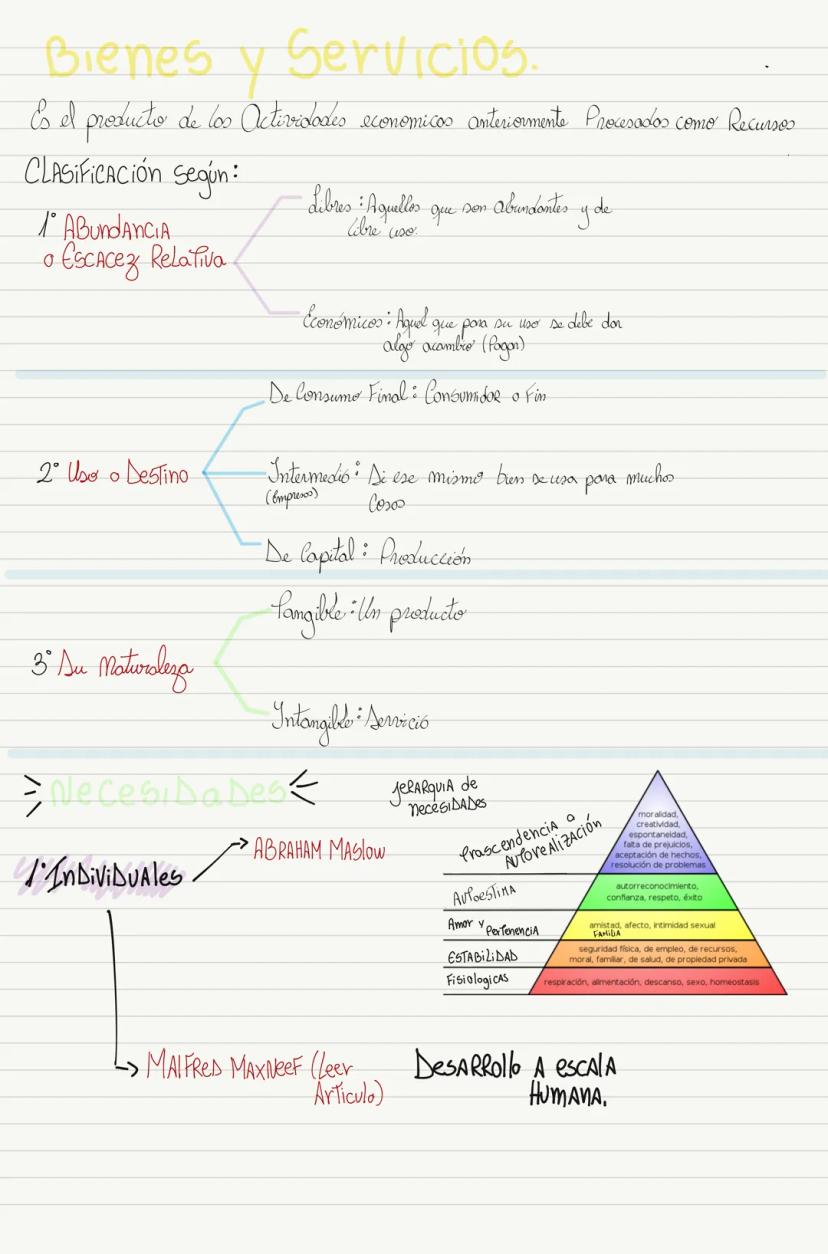 Bienes y Servicios.
Es el producto de los Actividades economicos anteriormente Procesados como Recursos
CLASIFICACIÓN según:
1° ABUNDANCIA
o ESCACEZ RELATIVA
Libres: Aquellos que son abundantes y de
libre uso.
Económicos: Aquel que para su uso se debe dar
algo acambio (Pagar)
2° Uso o Destino
De Consumo Final: Consumidor o Fin
Intermedio: Si ese mismo bien se usa para muchos
(Empresas)
Cosas
De Capital: Producción
3° Su Naturaleza
Tangible: Un producto
Intangible: Servicio
Necesidades
1° Individuales
ABRAHAM MASLOW
JERARQUIA de
NECESIDADES
Trascendencia o
AUTOREALIZACIÓN
moralidad,
creatividad,
espontaneidad,
falta de prejuicios,
aceptación de hechos,
resolución de problemas
AUTOESTIMA
autorreconocimiento,
confianza, respeto, éxito
Amor y Pertenencia
amistad, afecto, intimidad sexual
FAMILIA
ESTABILIDAD
seguridad física, de empleo, de recursos,
moral, familiar, de salud, de propiedad privada
Fisiologicas
respiración, alimentación, descanso, sexo, homeostasis
MALFRED MAXNEEF (Leer
Articulo)
DESARROLLO A ESCALA
HUMANA.